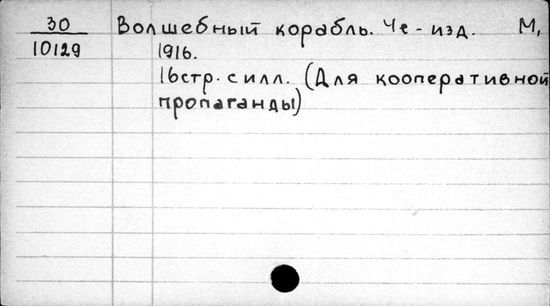 30 Волшебный корабль. Че-изд. М,
10129 1916.
16стр. с илл. (Для кооперативной
пропаганды)